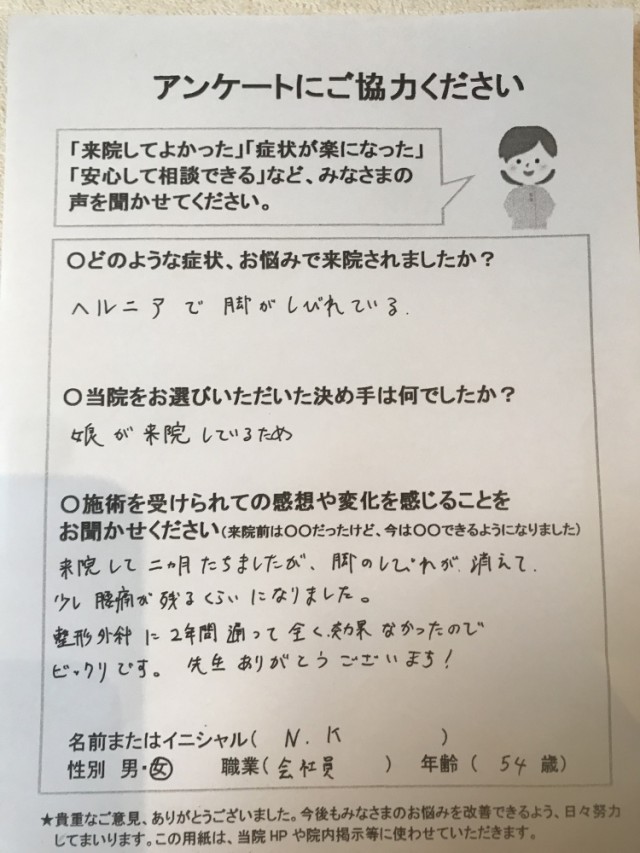 アンケートにご協力ください
「来院してよかった」「症状が楽になった」
「安心して相談できる」など、みなさまの
声を聞かせてください。
〇どのような症状、お悩みで来院されましたか？
ヘルニアで脚がしびれている.
〇当院をお選びいただいた決め手は何でしたか？
娘が来院しているため
〇施術を受けられての感想や変化を感じることを
お聞かせください(来院前は〇〇だったけど、今は〇〇できるようになりました)
来院して二ヵ月たちましたが、脚のしびれが消えて.
少し腰痛が残るくらいになりました。
整形外科に2年間通って全く効果なかったので
ビックリです。先生ありがとうございまち!
名前またはイニシャル( N. K )
性別 男・女 職業(会社員) 年齢( 54 歳)
★貴重なご意見、ありがとうございました。今後もみなさまのお悩みを改善できるよう、日々努力
してまいります。この用紙は、当院HPや院内掲示等に使わせていただきます。